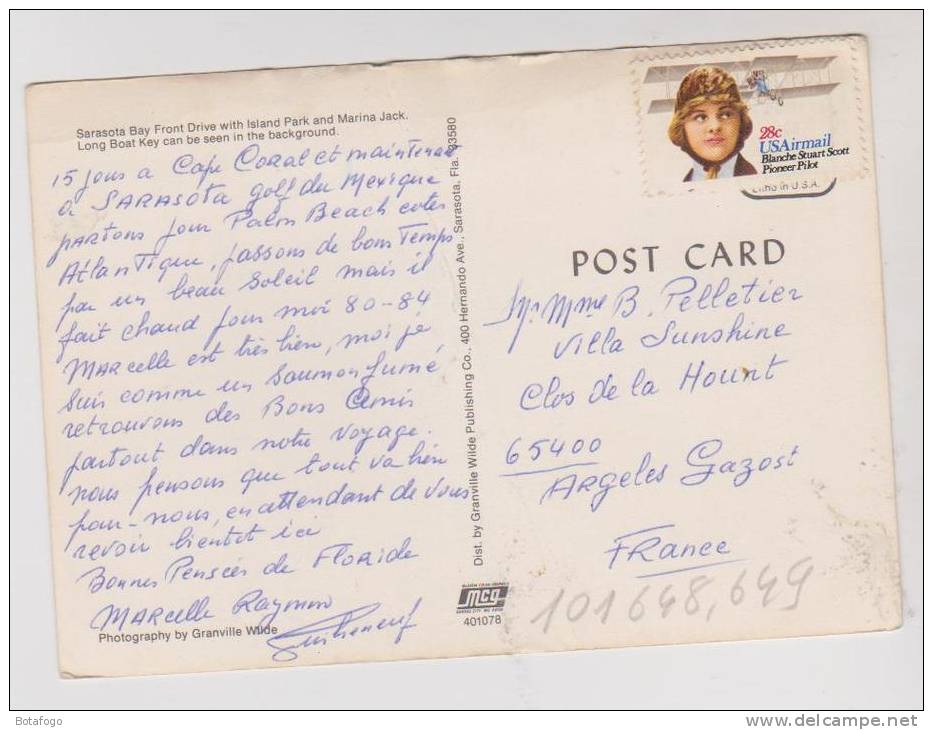 Sarasota Bay Front Drive with Island Park and Marina Jack.
Long Boat Key can be seen in the background.
15 jours a Cape CORAL et maintenant
a SARASOTA golf du Mexique
partons pour Palm Beach cotes
Atlantique, passons de bons Temps
par un beau Soleil mais il
fait chaud pour moi 80-84
MARCElle est très bien, moi je
suis comme un Saumon fumé,
retrouvons des Bons Amis
partout dans notre voyage.
nous pensons que tout va bien
pour-nous, en attendant de vous
revoir bientot ici
Bonnes Pensées de Floride
MARCElle Raymon
Photography by Granville Wilde
Dist. by Granville Wilde Publishing Co., 400 Hernando Ave., Sarasota, Fla. 33580
mcg
401078
28c
USAirmail
Blanche Stuart Scott
Pioneer Pilot
Litho in U.S.A.
POST CARD
Mr Mme B. Pelletier
Villa Sunshine
Clos de la Hount
65400
ARgeles Gazost
FRance
101648,649
Botafogo
www.delcampe.net